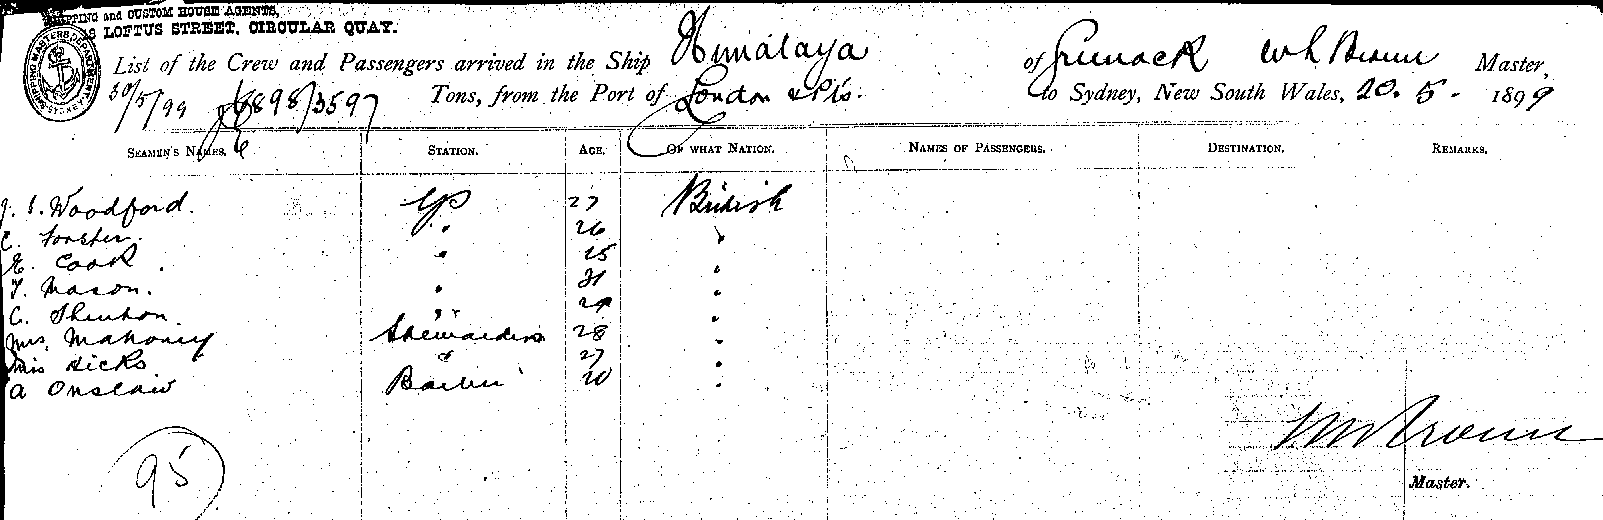 SHIPPING and CUSTOM HOUSE AGENTS,
LOFTUS STREET, CIRCULAR QUAY.
List of the Crew and Passengers arrived in the Ship Himalaya of Greenock W L Brown Master,
30/5/99 6898/3597 Tons, from the Port of London & Pts. to Sydney, New South Wales, 20. 5. 1899
SEAMEN'S NAMES. STATION. AGE. OF WHAT NATION. NAMES OF PASSENGERS. DESTINATION. REMARKS.
J. S. Woodford. GP 27 British
C. Forster. " 26 "
E. Cook. " 25 "
T. Mason. " 31 "
C. Shenton. " 29 "
Mrs. Mahoney Stewardess 28 "
Mis Hicks " 27 "
A Onslaw Barber 20 "
95
W L Brown
Master.